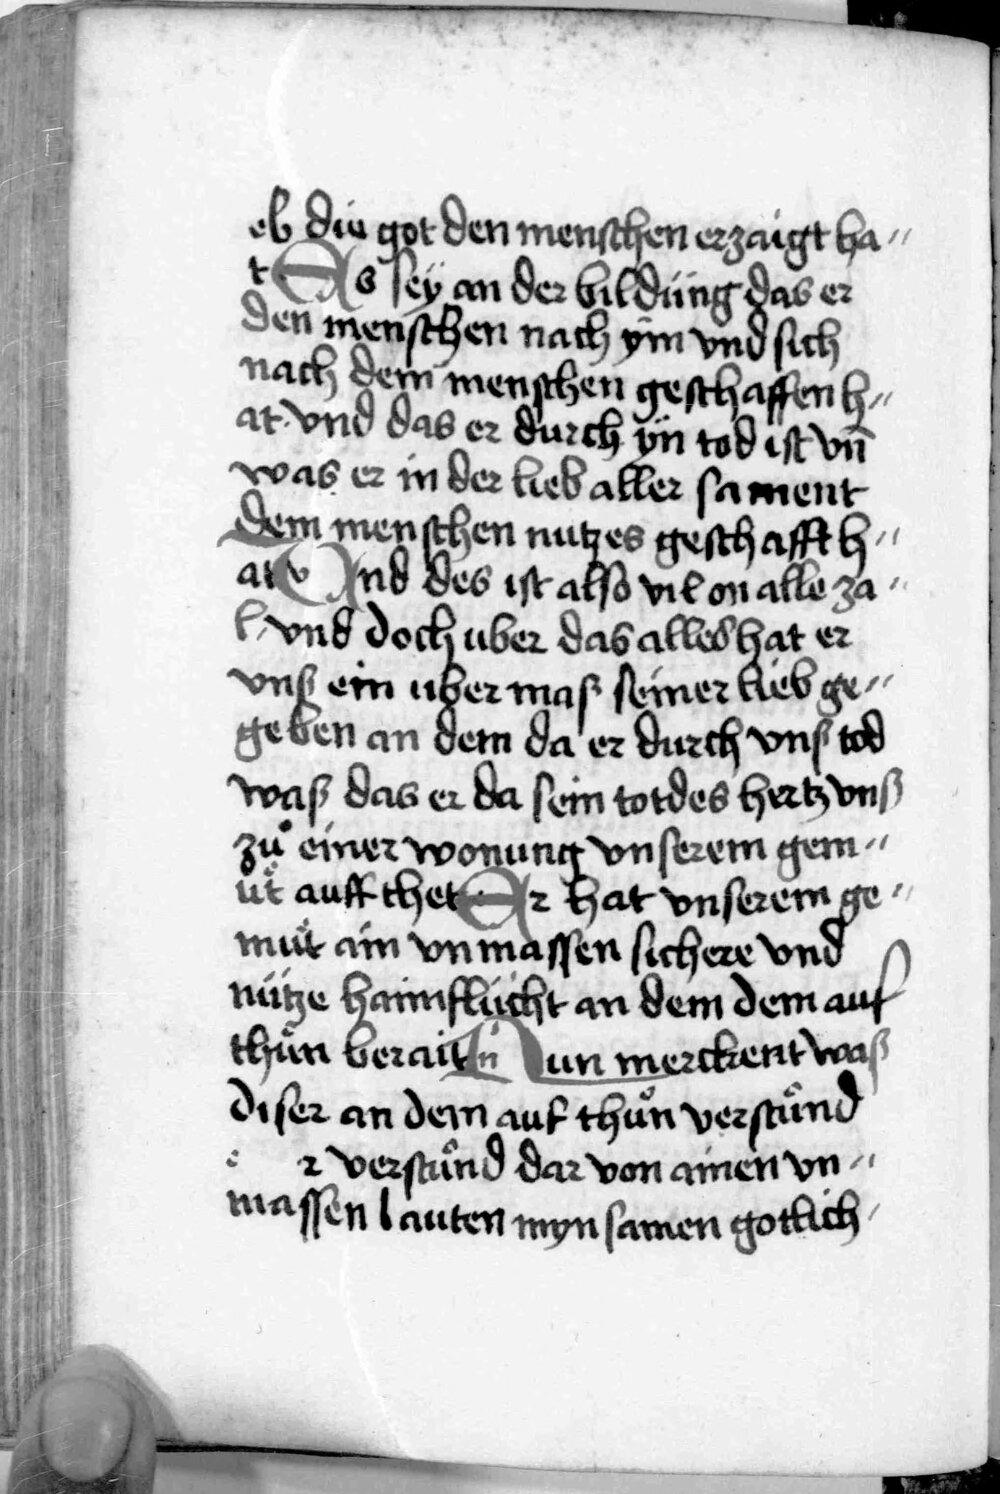 eb die got den menschen erzaigt ha〃
t Es seÿ an der bildüng das er
den menschen nach ÿm vnd sich
nach dem menschen geschaffen h〃
at vnd das er durch ÿn tod ist vn̄
was er in der lieb aller sament
dem menschen nutzes geschafft h〃
at Vnd des ist also vil on alle za〃
l, vnd doch uber das alles hat er
vnß ein uber maß seiner lieb ge〃
geben an dem da er durch vnß tod
waß das er da sein totdes hertz vnß
zuͦ einer wonung vnserem gem〃
uͤt auff thet Er hat vnserem ge〃
muͤt ain vnmassen sichere vnd
nütze haimflücht an dem dem auf
thuͦn berait Nun merckent waß
diser an dem auf thuͦn verstuͦnd
e r verstuͦnd dar von ainen vn〃
massen lauten mynsamen gotlich